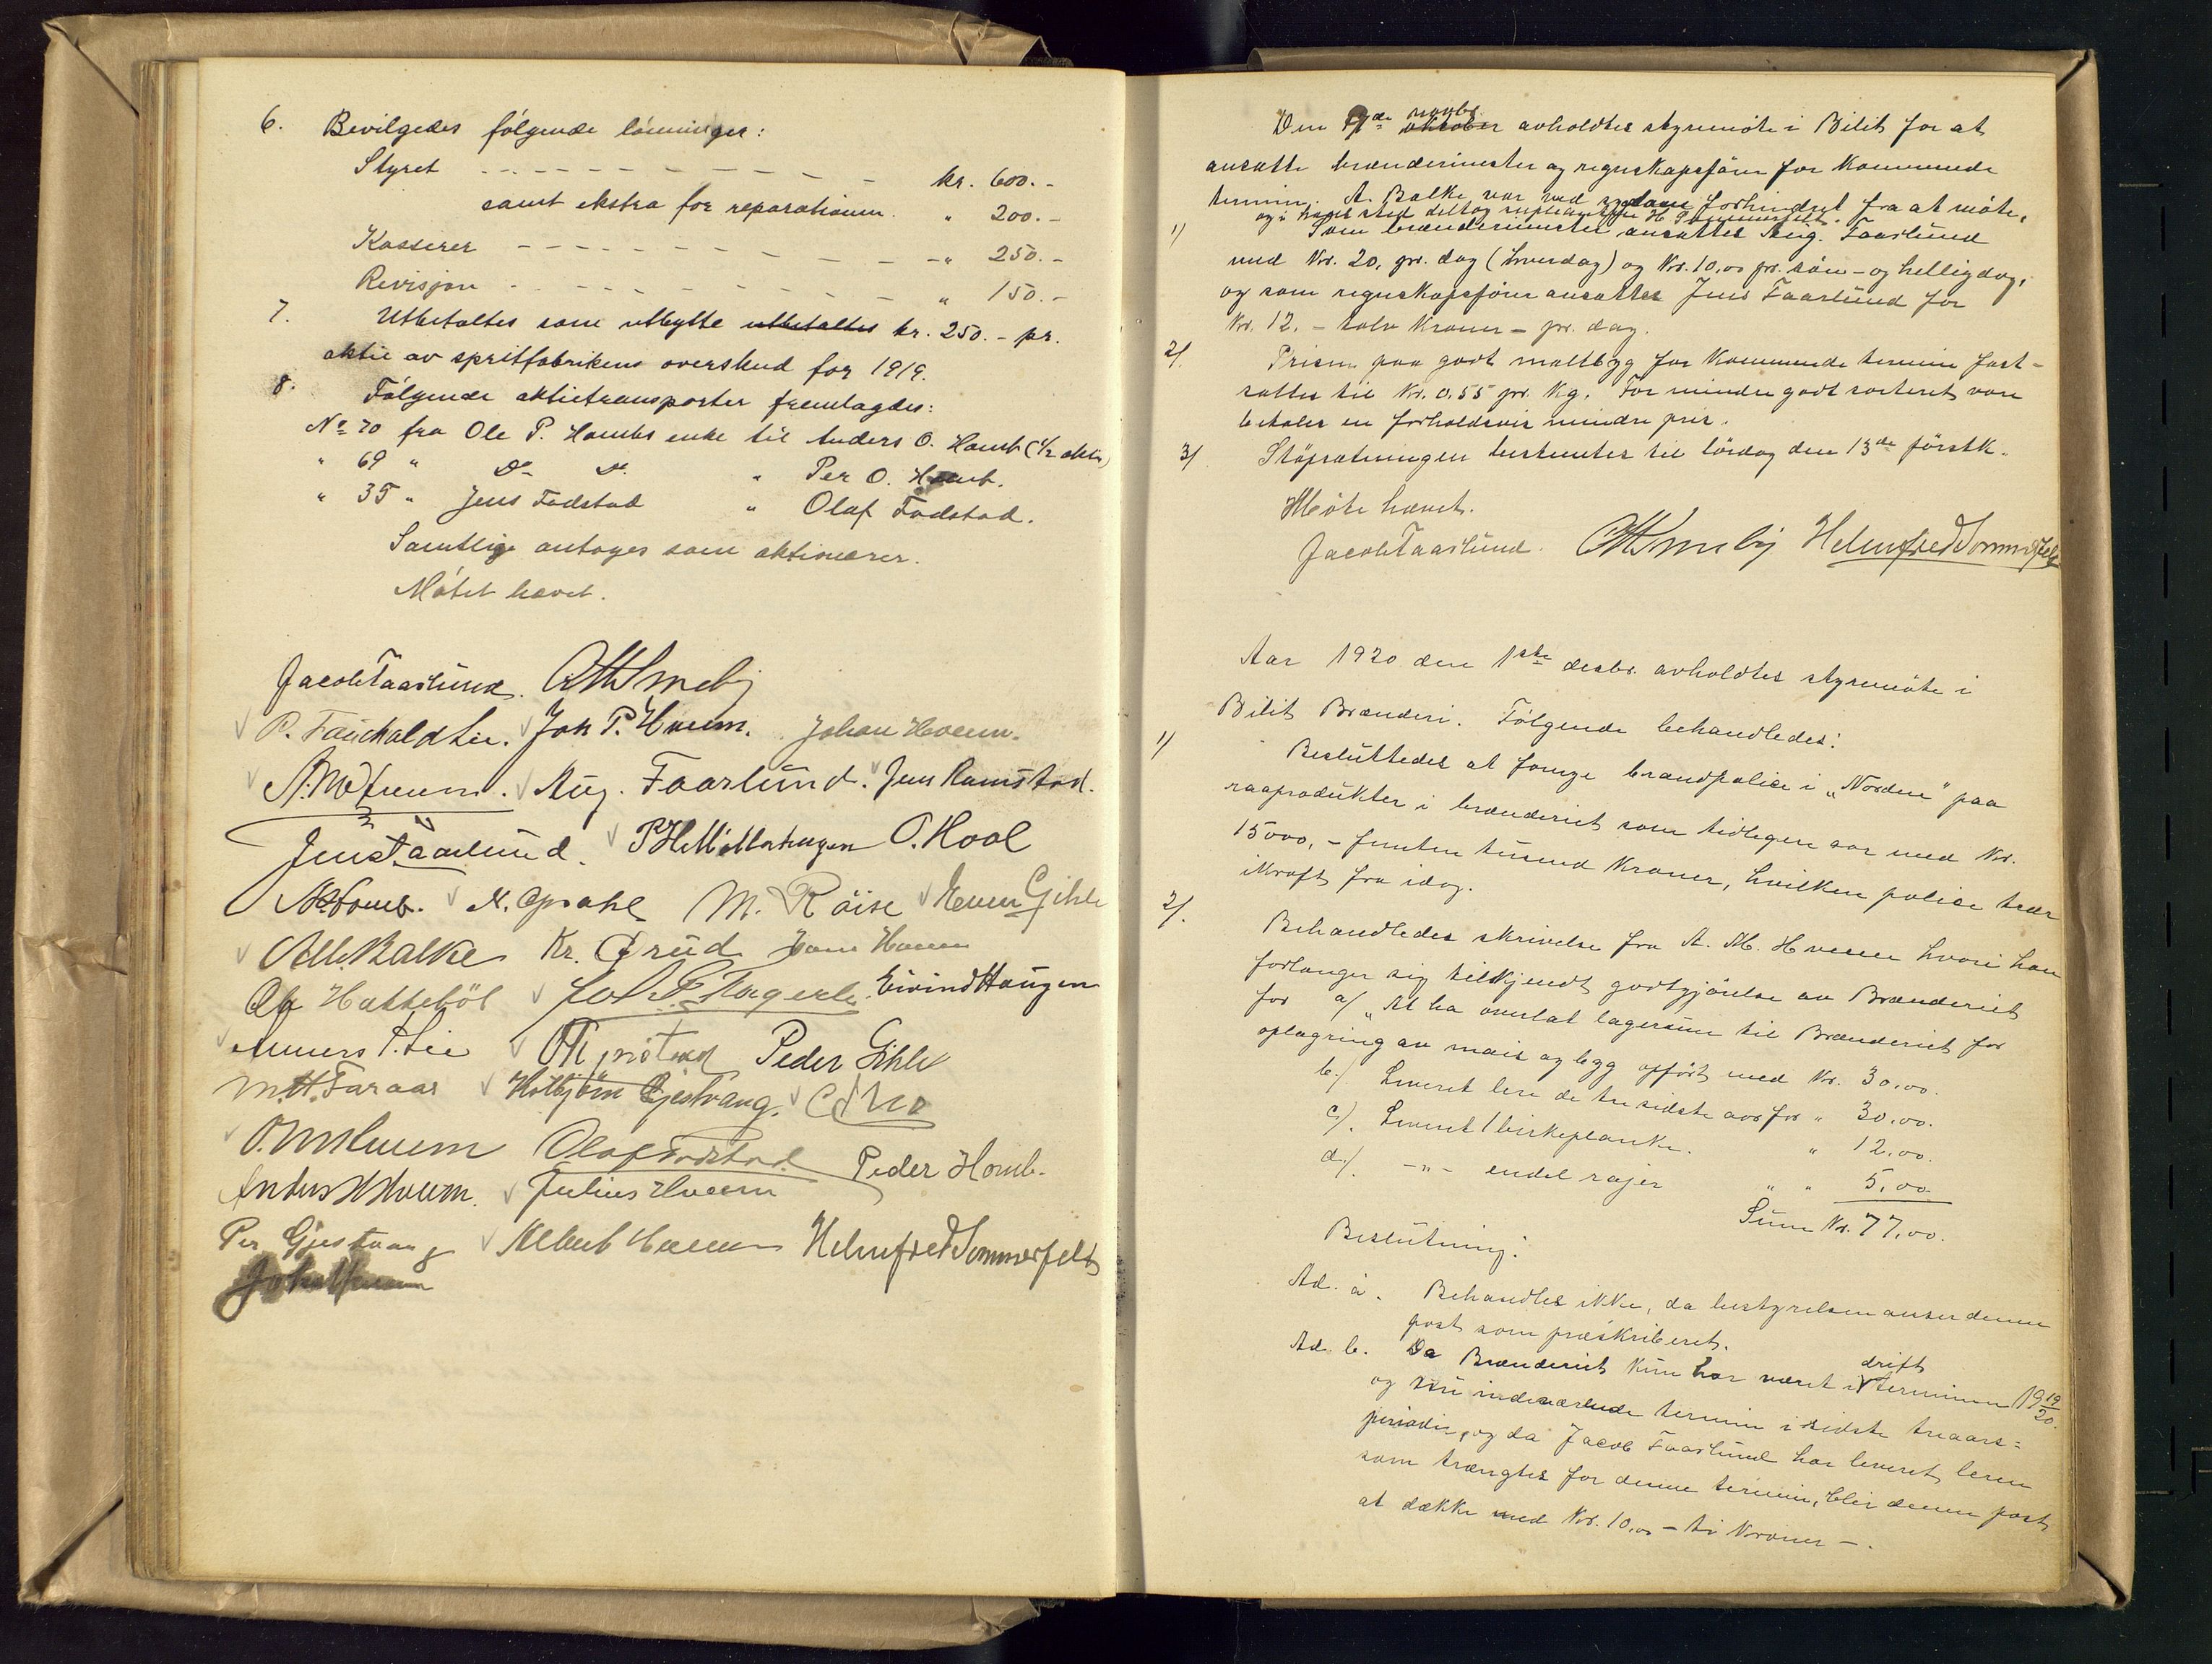 6. Bevilgedes følgende lønninger:
Styret - - - - - - - - - - - kr. 600.-
samt ekstra for reparationen. " 200.-
Kasserer - - - - - - - - - -" 250.-
Revisjon - - - - - - - - - - " 150.-
7. Utbetaltes som utbytte utbetaltes kr. 250.- pr.
aktie av spritfabrikens overskud for 1919.
8. Følgende aktietransporter fremlagdes:
No 70 fra Ole P. Hombs enke til Anders O. Homb (1/2 aktie)
" 69 " Do Do " Per O. Homb.
" 35 " Jens Fodstad " Olaf Fodstad.
Samtlige antoges som aktionærer.
Møtet hævet.
Jacob Faarlund. O M Smeby
P. Fauchald Lie. Joh P. Hveem. Johan Hveem.
A. M. Hveem. Aug. Faarlund. Jens Ramstad.
Jens Faarlund. P H Møllerhagen O. Hool
Homb. N. Opsahl M. Røise Even Gihle
Balke Kr. Grud Hans Hveem
Hatlebøl Eivind Haugen
Anners P. Lie Peder Gihle
M. H. Faraas Gjestvang.
O. M. Hveem Olaf Fodstad. Peder Homb.
Anders Hveem. Julius Hveem
Per Gjestvang Albert Hveem Helmfred Sommerfeldt
Johan Hveem
Den 9de novbr. oktober avholdtes styremøte i Bilit for at
ansætte brænderimester og regnskapsfører for kommende
termin. A. Balke var ved sygdom forhindret fra at møte,
og i hans sted deltog suppleanten H. Sommerfeldt.
1) Som brænderimester ansattes Aug. Faarlund
med Kr. 20, pr. dag (hverdag) og Kr. 10,00 pr. søn- og helligdag,
og som regnskapsfører ansattes Jens Faarlund for
Kr. 12, - tolv Kroner - pr. dag.
2). Prisen paa godt maltbyg for Kommende termin fast-
sattes til Kr. 0,55 pr. Kg. For mindre godt sorteret vare
betales en forholdsvis mindre pris.
3) Støpsætningen bestemtes til lørdag den 13de førstk.
Møte hævet.
Jacob Faarlund. O M Smeby Helmfred Sommerfeldt
Aar 1920 den 1ste desbr. avholdtes styremøte i
Bilit Brænderi. Følgende behandledes:
1) Besluttedes at fornye brandpolice i „Norden" paa
raaprodukter i brænderiet som tidligere var med Kr.
15000, - femten tusend Kroner, hvilken police træer
ikraft fra idag.
2). Behandledes skrivelse fra A. M. Hveem hvori han
forlanger sig tilkjendt godtgjørelse av Brænderiet
for a) „At ha overlat lagerrum til Brænderiet for
oplagring av mais og bygg opført med Kr. 30,00.
b.) Leveret lere de tre sidste aar for " 30,00.
c). Leveret 1 birkeplanke. " 12,00.
d.). -"- endel rajer " " 5,00
Sum Kr. 77,00.
Beslutning:
Ad. a. Behandles ikke, da bestyrelsen anser denne
post som præskriberet.
Ad. b. Da Brænderiet kun har været i drift terminen 1919/20.
og nu indeværende termin i sidste treaars=
periode, og da Jacob Faarlund har leveret leren
som trængtes for denne termin, blir denne post
at dække med Kr. 10,00 - ti Kroner -.